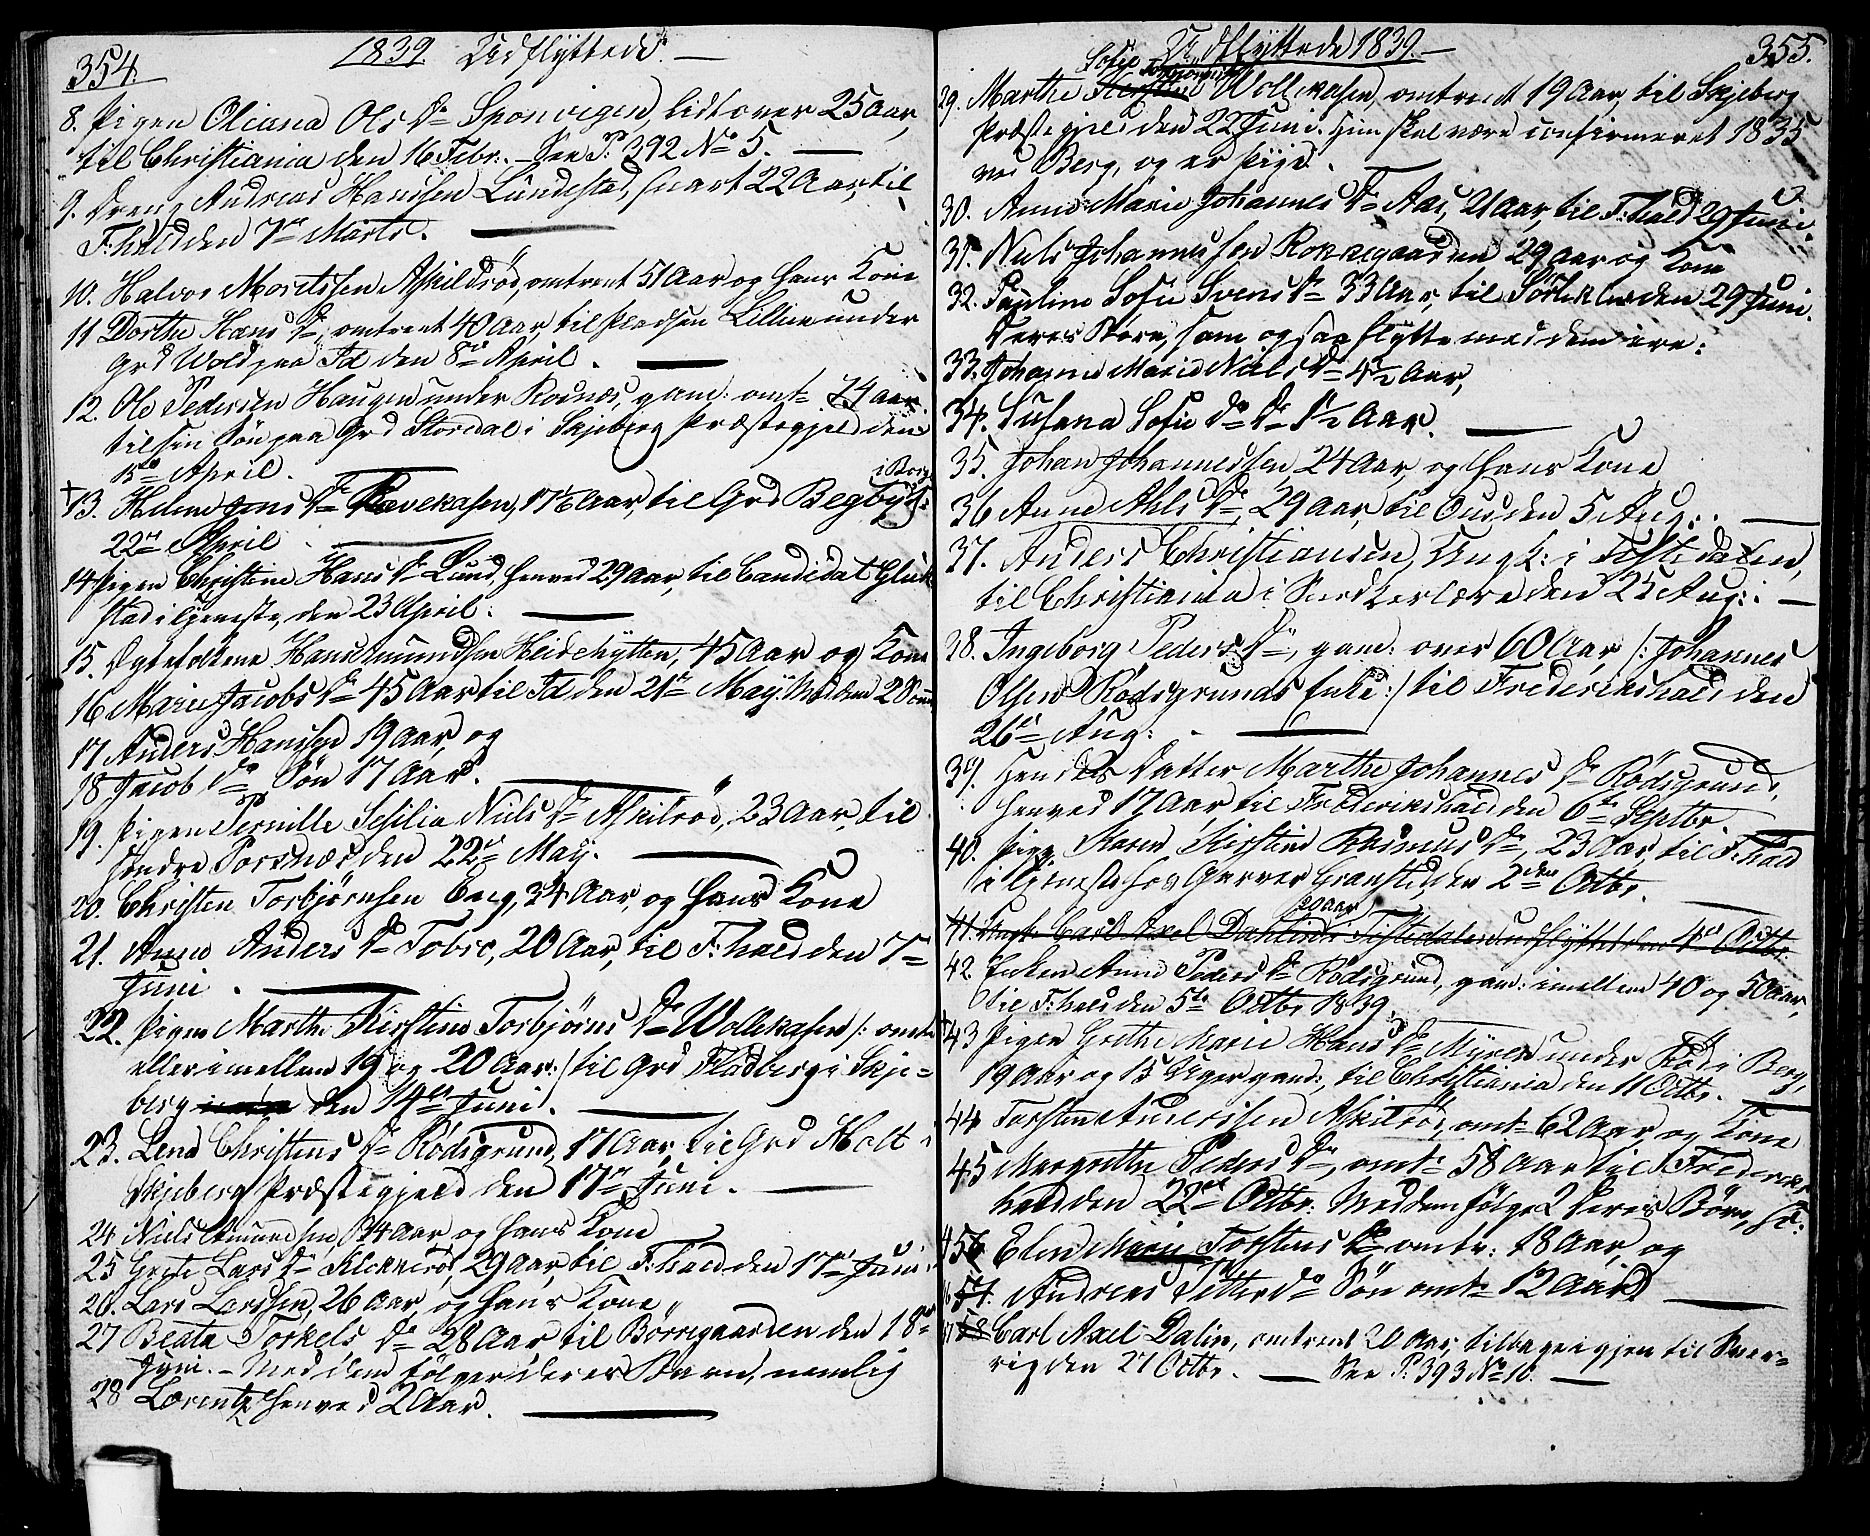 354.
1839. Udflyttede. —
8. Pigen Oliana Ols Dr Sponvigen, lidt over 25 Aar,
til Christiania den 16 Febr. – See P. 392 No 5. —
9. Dreng Andreas Hanssen Lundestad, snart 22 Aar, til
F:hald den 7de Marts. —
10. Halvor Moritssen Askildsrød, omtrent 51 Aar og hans Kone
11 Dorthe Hans Dr, omtrent 40 Aar, til Pladsen Lilleve under
Grd Wold paa Id den 8de April. —
12. Ole Pedersen Haugen under Rosnæs, gam: omt 74 Aar
til sin Søn paa Grd Stordal i Skjeberg Præstegjeld den
15de April. —
i Borg
+ 13. Helene Jens Dr Rævekasen, 17½ Aar, til Grd Begby d:
22de April. —
14 Pigen Christine Hans Dr Lund, henved 29 Aar, til Candidat Glück
stad i tjeneste, den 23 April. —
15. Ægtefolkene Hans Amundsen Heidehytten, 45 Aar og Kone
16 Marie Jacobs Dr 45 Aar til Id den 21de May. Med dem 2 Sønner
17 Anders Hanssen 19 Aar, og
18 Jacob do Søn 17 Aar. —
19. Pigen Pernille Sesilia Niels Dr Askilsrød, 23 Aar, til
søndre Torsnæs, den 22de May. —
20. Christen Torbjørnsen Berg, 34 Aar, og hans Kone
21. Anne Anders Dr Tobre, 20 Aar, til F:hald den 7de
Juni. —
22. Pigen Marthe Kirstine Torbjørns Dr Wollekasen /: omt
eller imellem 19 og 20 Aar :/ til Grd Fladberg i Skje-
berg den 14de Juni. —
23. Lena Christens Dr Rødsgrund, 17 Aar, til Grd Holt i
Skjeberg Præstegjeld den 17de Juni. —
24 Niels Amundsen, 34 Aar, og hans Kone
25 Grete Lars Dr Klokkerød, 29 Aar, til F:hald den 17de Juni.
26. Lars Larssen, 26 Aar, og hans Kone
27 Beata Torkels Dr 28 Aar, til Börregaarden den 18de
Juni. – Med dem følger deres Barn, nemlig
28 Lorentz, henved 2 Aar. —
Udflyttede 1839. —
355.
Sofie Torbjørns Dr
29. Marthe Kirstine Wollekasen, omtrent 19 Aar, til Skjeberg
Præstegjeld den 22 Juni. Hun skal være confirmeret 1835
ved Berg, og er Pige.
30. Anne Marie Johannes Dr Aas, 21 Aar, til F:hald 29 Juni.
31. Niels Johannessen Rokkegaarden 29 Aar og Kone
32. Pauline Sofie Svens Dr 33 Aar, til den 29 Juni.
Deres Børn, som ogsaa flytte med dem ere:
33. Johanne Marie Niels Dr 4½ Aar,
34. Susana Sofie do Dr 1½ Aar. —
35. Johan Johannessen, 24 Aar, og hans Kone
36 Anne Ahls Dr, 29 Aar, til Ous den 5 Aug: —
37. Anders Christiansen, Ungk: i Tistedalen,
til Christiania i Snedkerlære den 25 Aug: —
38. Ingeborg Peders Dr, gam: over 60 Aar /: Johannes
Olsen Rødsgrunds Enke :/ til Frederikshald den
26de Aug: —
39. Hendes Datter Marthe Johannes Dr Rødsgrund,
henved 17 Aar, til Frederikshald den 6te Septbr. —
40. Pige Karen Kirstine Rasmus Dr, 23 Aar, til F:hald
i tjeneste hos Garver Granstedt den 2den Octbr. —
20 Aar
41. Ungk: Carl Axel Dahlin Tistedalen udflyttet den 4de Octbr.
42. Enken Anne Peders Dr Rødsgrund, gam: imellem 40 og 50 Aar,
til F:hald den 5te Octbr 1839. —
+ 43 Pigen Grethe Marie Hans Dr Myren under Rød i Berg,
19 Aar og 15 Uger gam:, til Christiania den 11 Octbr. —
44 Torsten Anderssen Askilsrød, omt 62 Aar, og Kone
45 Margrethe Peders Dr, omt 58 Aar til Frederiks
hald den 22de Octbr. Med dem følge 2 deres Børn, sc:
Elen Marie Torstens Dr omtr: 18 Aar, og
Andreas Petter do Søn omt 12 Aar) —
Carl Axel Dalin, omtrent 20 Aar, tilbage igjen til Sver-
rig den 27 Octbr. — See P. 393 No 10. —